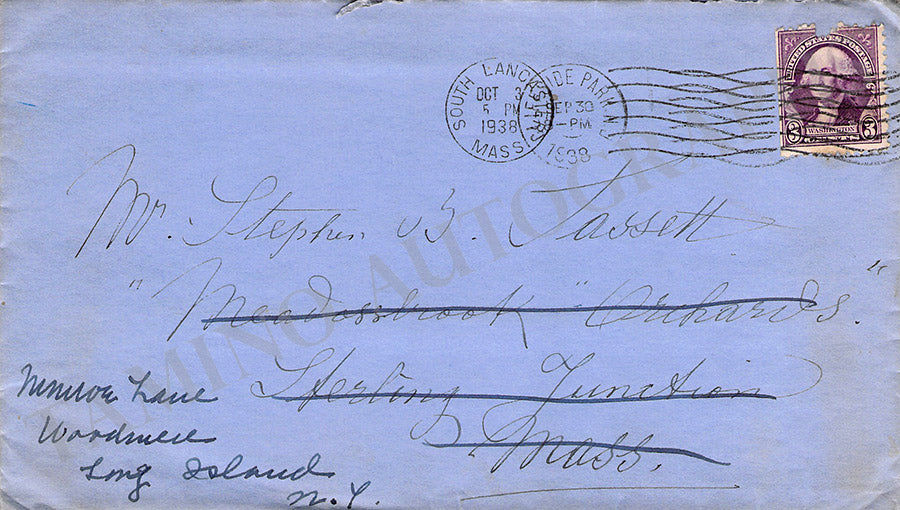 SOUTH LANCASTER
OCT 3
5 PM
1938
MASS.
HYDE PARK N.Y.
SEP 30
-PM
1938
UNITED STATES POSTAGE
3 WASHINGTON 3
Mr. Stephen B. Tassett
"Meadowbrook" Orchards"
Sterling Junction
Mass.
Monroe Lane
Woodmere
Long Island
N.Y.
TAMINO AUTOGRAPHS